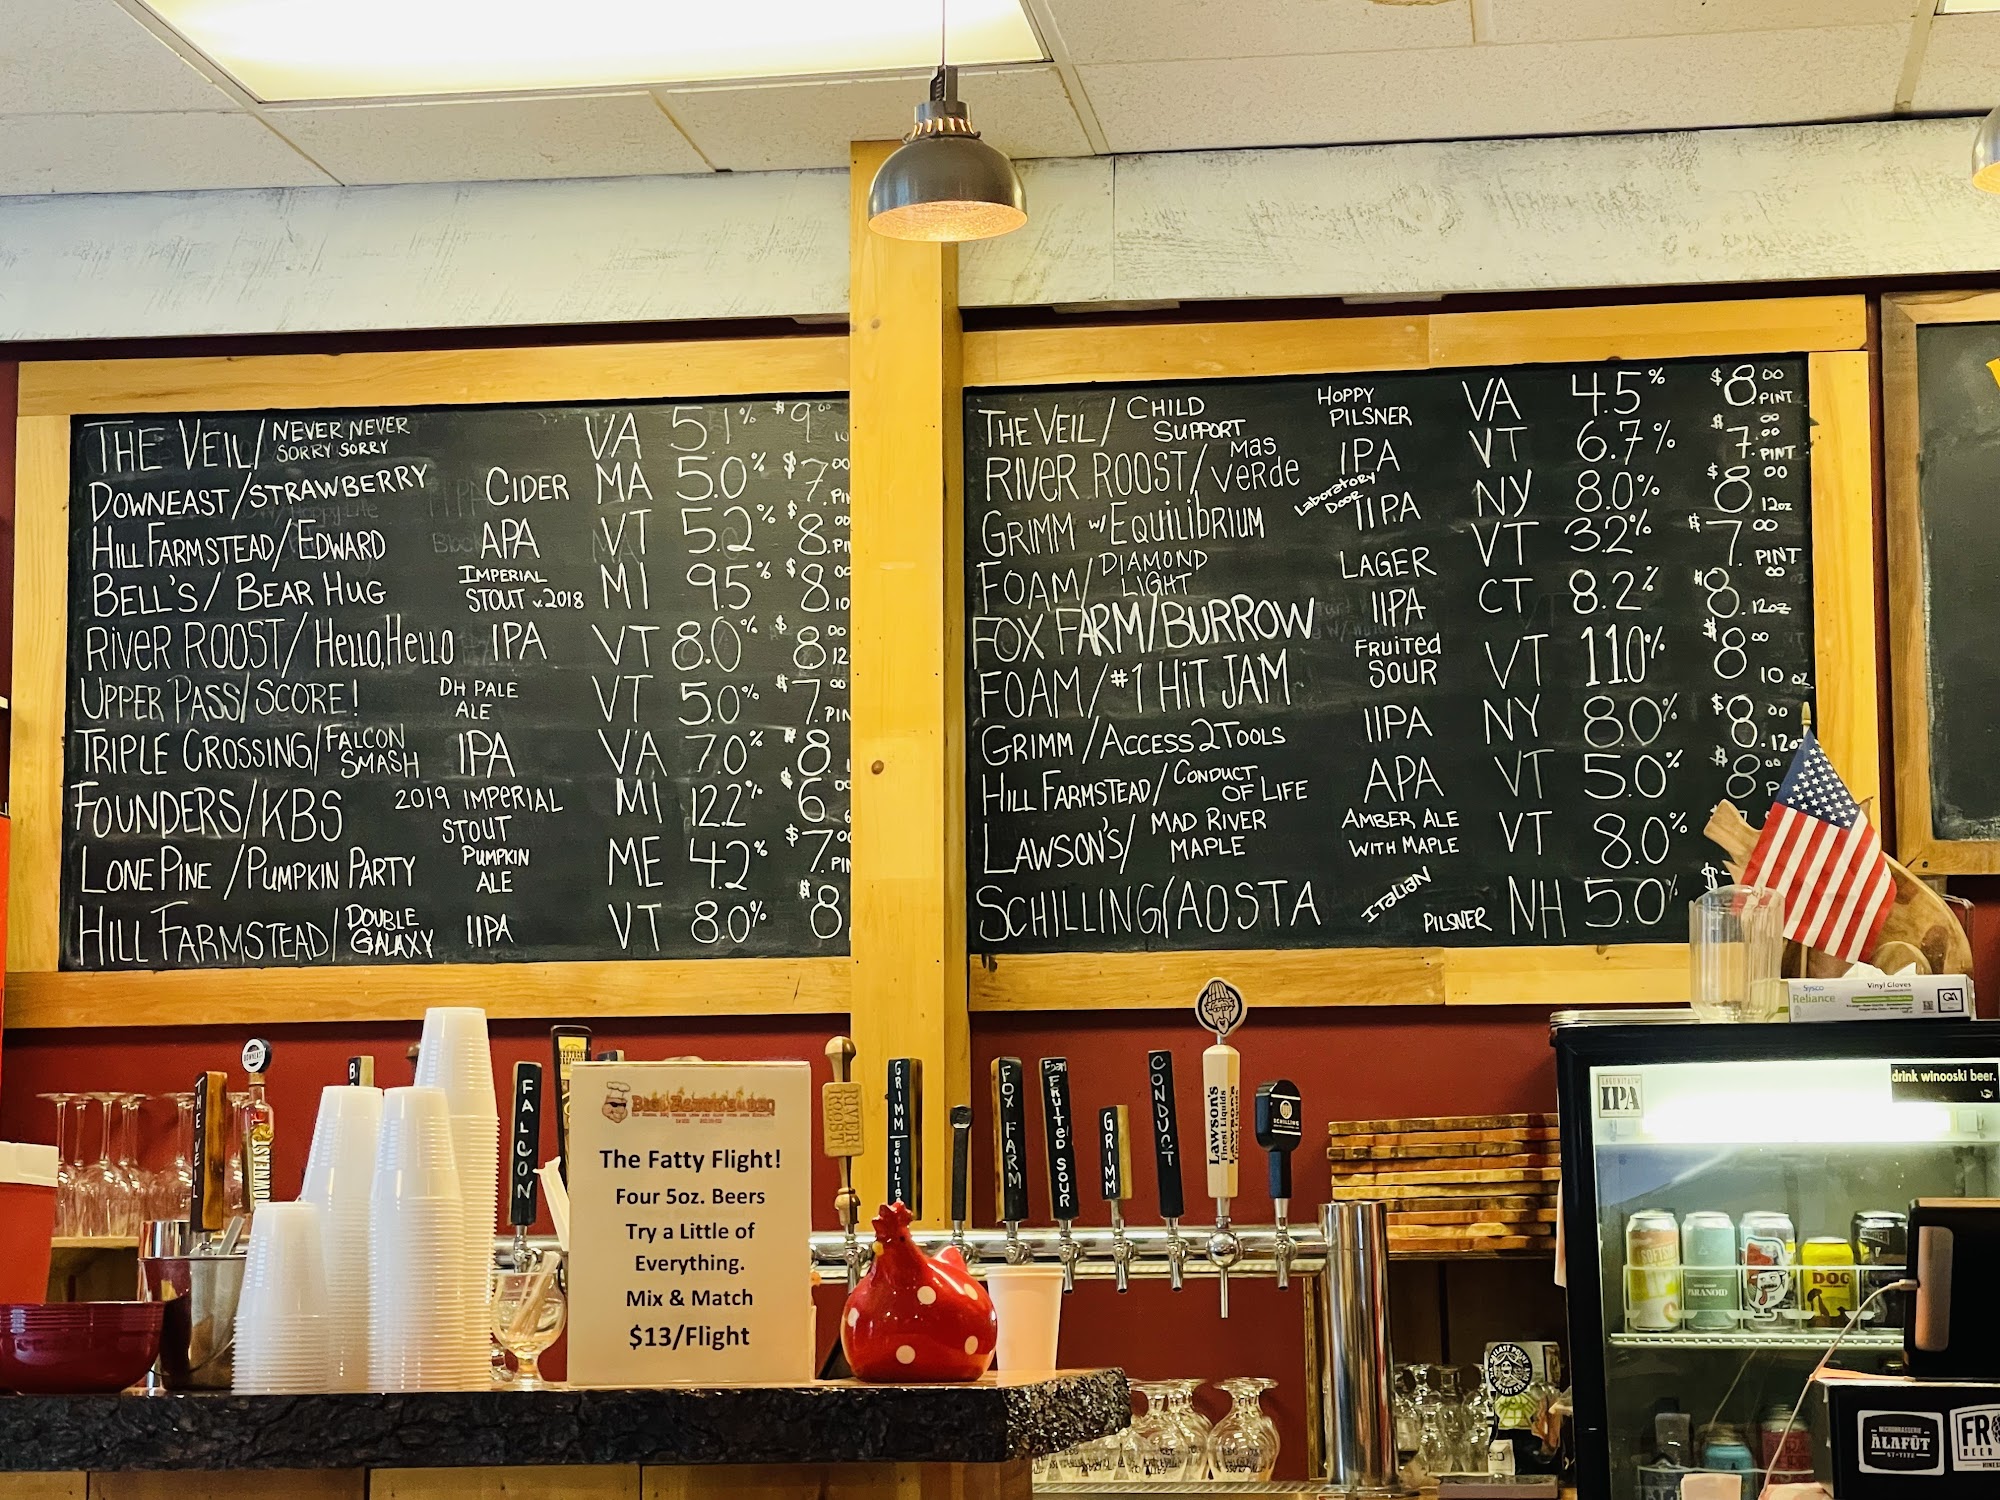 THE VEIL/ NEVER NEVER SORRY SORRY VA 5.1% $9.00
DOWNEAST/STRAWBERRY CIDER MA 5.0% $7.00
HILL FARMSTEAD/ EDWARD APA VT 5.2% $8.00
BELL'S/ BEAR HUG IMPERIAL STOUT v.2018 MI 9.5% $8.00 10
RIVER ROOST/ HELLO, HELLO IPA VT 8.0% $8.00 12
UPPER PASS/SCORE! DH PALE ALE VT 5.0% $7.00
TRIPLE CROSSING/ FALCON SMASH IPA VA 7.0% $8
FOUNDERS/KBS 2019 IMPERIAL STOUT MI 12.2% $6.00
LONE PINE /PUMPKIN PARTY PUMPKIN ALE ME 4.2% $7.00
HILL FARMSTEAD/ DOUBLE GALAXY IIPA VT 8.0% $8
THE VEIL/ CHILD SUPPORT HOPPY PILSNER VA 4.5% $8.00 PINT
RIVER ROOST/ MAS VERDE IPA VT 6.7% $7.00 PINT
GRIMM w/ EQUILIBRIUM Laboratory Door IIPA NY 8.0% $8.00 12oz
FOAM/ DIAMOND LIGHT LAGER VT 3.2% $7.00 PINT
FOX FARM/BURROW IIPA CT 8.2% $8.00 12oz
FOAM/#1 HIT JAM FRUITED SOUR VT 11.0% $8.00 10 oz
GRIMM/ACCESS 2 TOOLS IIPA NY 8.0% $8.00 12oz
HILL FARMSTEAD/ CONDUCT OF LIFE APA VT 5.0% $8.00
LAWSON'S/ MAD RIVER MAPLE AMBER ALE WITH MAPLE VT 8.0%
SCHILLING/AOSTA ITALIAN PILSNER NH 5.0% $
THE VEIL
DOWNEAST
DOWNEAST
FALCON
The Fatty Flight!
Four 5oz. Beers
Try a Little of
Everything.
Mix & Match
$13/Flight
RIVER ROOST
GRIMM
FOX FARM
FOAM
FRUITED SOUR
GRIMM
CONDUCT
LAWSON'S
Finest Liquids
SCHILLING
Sysco
Reliance
Vinyl Gloves
LAGUNITAS
IPA
drink winooski beer.
PARANOID
DOG
BALLAST POINT
MICROBRASSERIE
ALAFÛT
ST-TITE